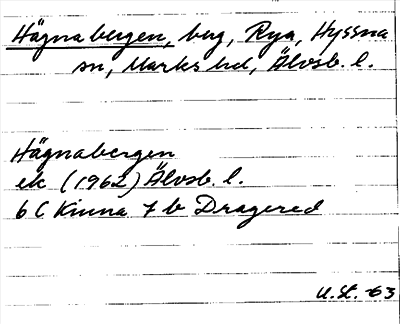 Hägnabergen, berg, Rya, Hyssna
sn, Marks hd, Älvsb. l.
Hägnabergen
ek (1962) Älvsb. l.
6 C Kinna 7 b Dragered
U.St. -63